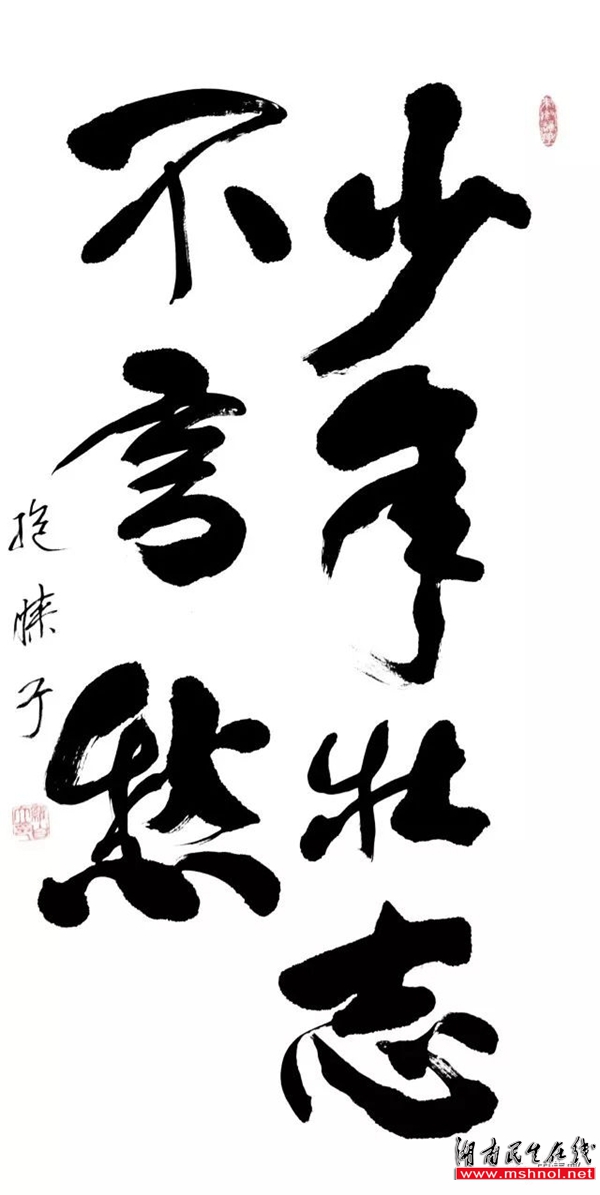 少年壮志
不言愁
抱朴子
湖南民生在线
www.mshnol.net